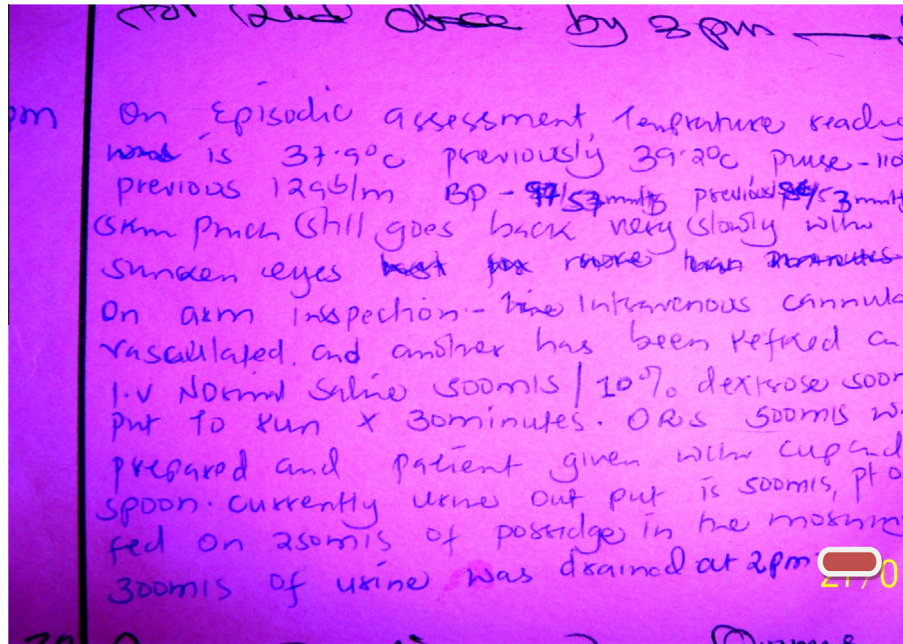 for 2nd dose by 3pm
pm On Episodic assessment, Temprature readin
is 37.9°c previously 39.2°c pulse - 110
previous 129b/m BP - 97/53mmHg previous 84/53mmH
Skin pinch still goes back very slowly with
sunken eyes
On arm inspection - the Intravenous cannula
vasculated and another has been refixed an
I.V Normal Saline 500mls / 10% dextrose 500m
put to run x 30minutes. ORS 500mls w
prepared and patient given with cup and
spoon. currently urine out put is 500mls, pt
fed on 250mls of porridge in the morning
300mls of urine was drained at 2pm